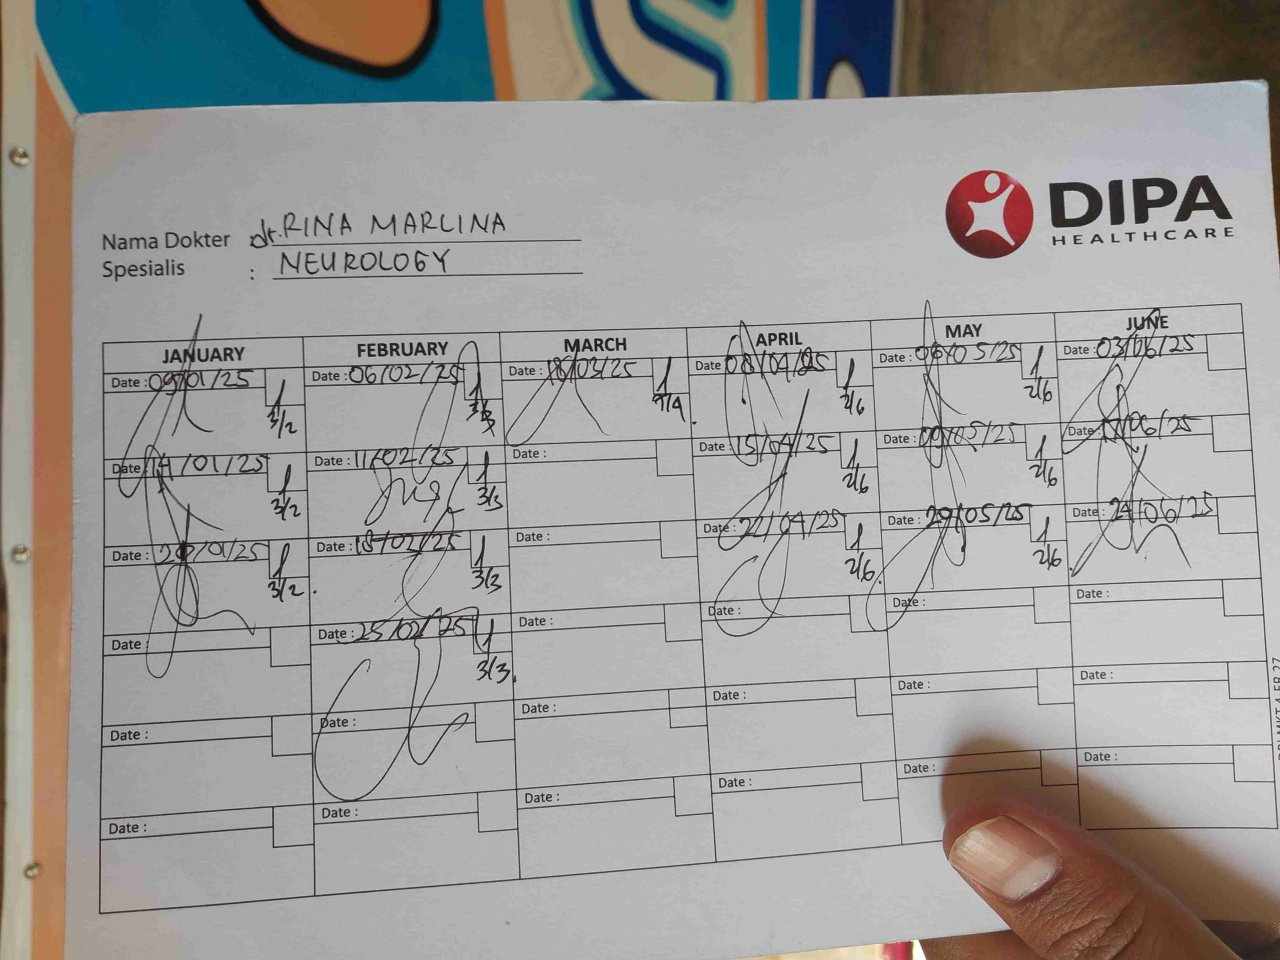 DIPA
HEALTHCARE
Nama Dokter dr. RINA MARLINA
Spesialis : NEUROLOGY
JANUARY FEBRUARY MARCH APRIL MAY JUNE
Date : 09/01/25 Date : 06/02/25 Date : 18/03/25 Date : 08/04/25 Date : 06/05/25 Date : 03/06/25
3/2 3/3 7/4 2/6 2/6
Date : 14/01/25 Date : 11/02/25 Date : Date : 15/04/25 Date : 09/05/25 Date : /06/25
3/2 3/3 2/6 2/6
Date : /01/25 Date : 18/02/25 Date : Date : 22/04/25 Date : 29/05/25 Date : 24/06/25
3/2 3/3 2/6 2/6
Date : Date : 25/02/25 Date : Date : Date : Date :
3/3
Date : Date : Date : Date : Date : Date :
Date : Date : Date : Date : Date : Date :